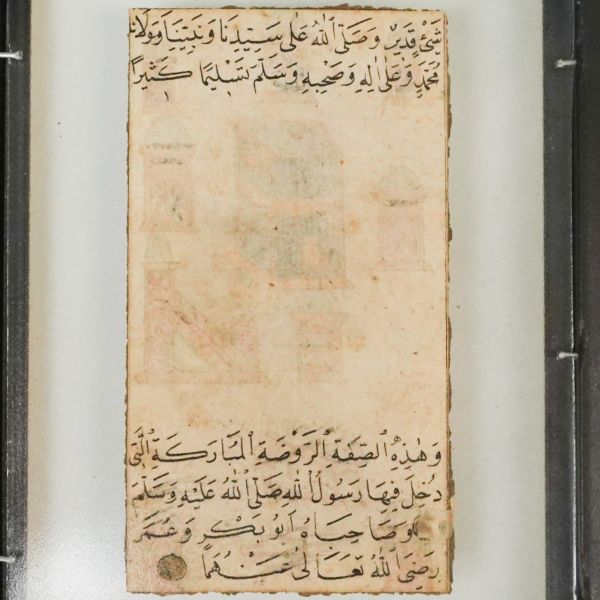 شَيْءٍ قَدِيرٌ وَصَلَّى ٱللهُ عَلَى سَيِّدِنَا وَنَبِيِّنَا وَمَوْلَانَا
مُحَمَّدٍ وَعَلَى اٰلِهِ وَصَحْبِهِ وَسَلَّمَ تَسْلِيمًا كَثِيرًا
وَهٰذِهِ ٱلصِّفَةِ ٱلرَّوْضَةِ ٱلْمُبَارَكَةِ ٱلَّتِي
دُخِلَ فِيهَا رَسُولُ ٱللهِ صَلَّى ٱللهُ عَلَيْهِ وَسَلَّمَ
وَصَاحِبَاهُ اَبُو بَكْرٍ وَعُمَرَ
رَضِيَ ٱللهُ تَعَالَى عَنْهُمَا